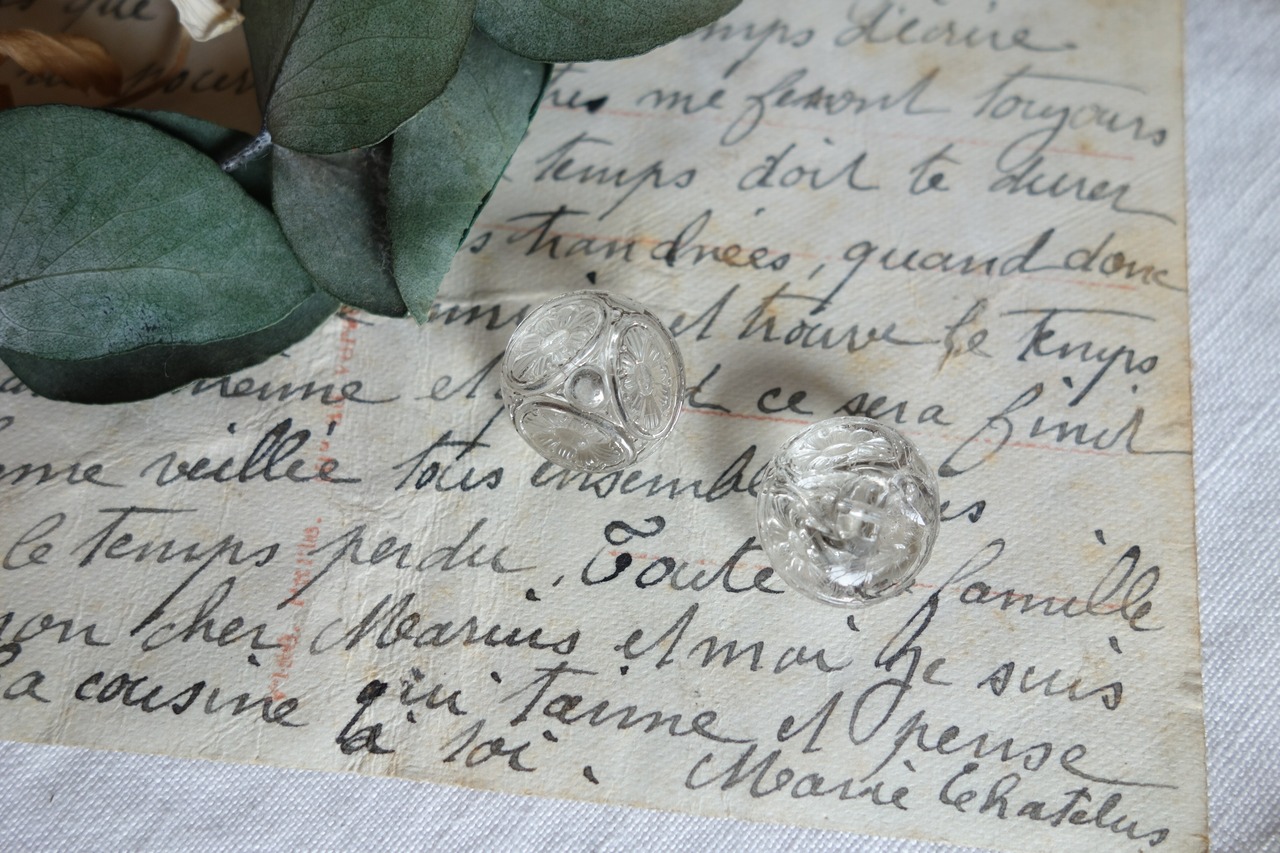 que
temps d'écrire.
pour me feront toujours
temps doit te durer
s trandrées, quand donc
et trouve le temps
ce sera finit
me veillée tous ensemble
le temps perdu. Toute famille
mon cher Marius et moi je suis
la cousine qui t'aime et pense
à toi. Marie Chatelus